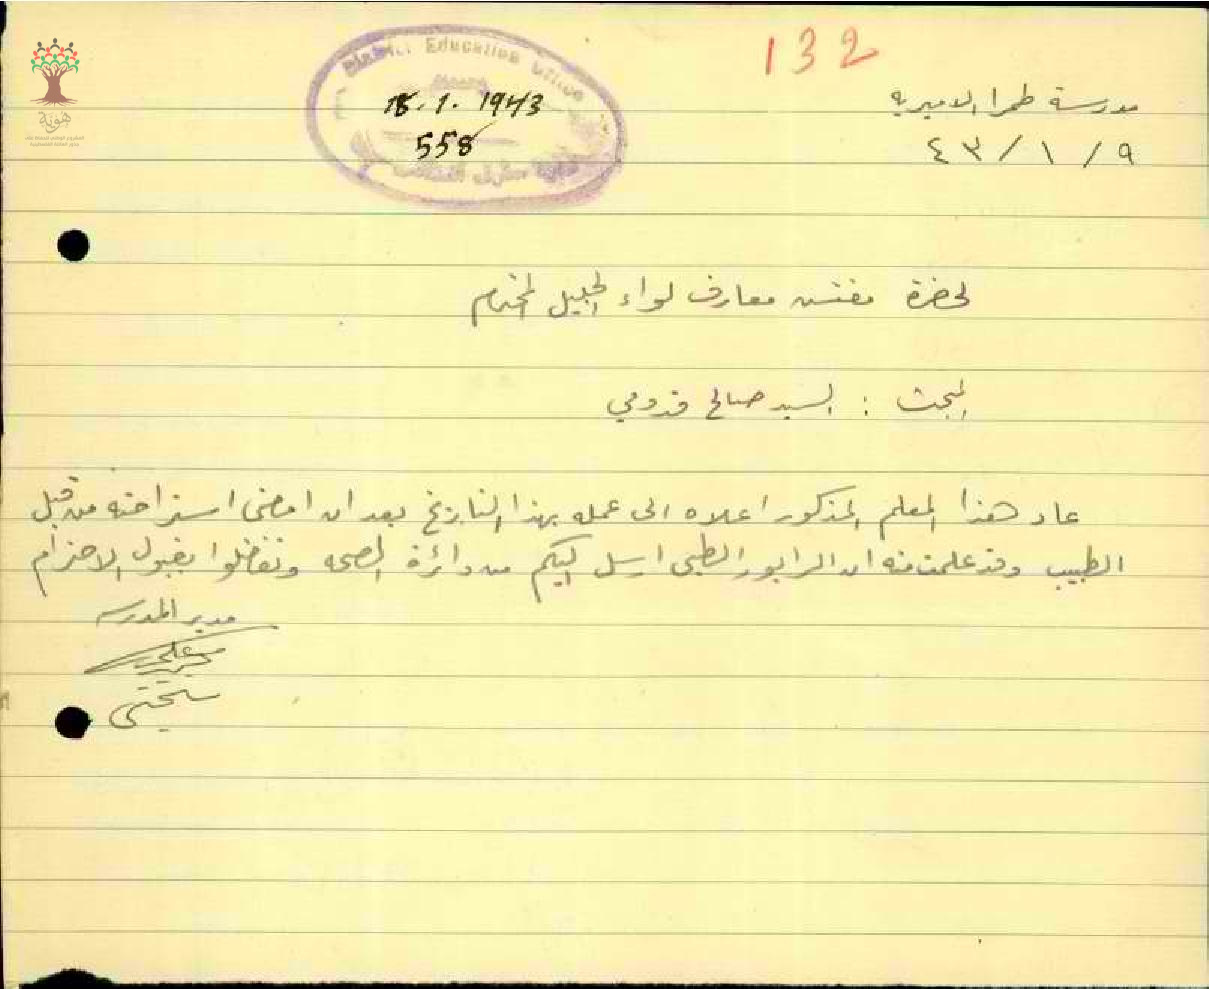 132
District Education Office
18.1.1943
558
مدرسة طمرا الاميريه
٩ / ١ / ٤٣
هوية
لحضرة مفتش معارف لواء الجليل المحترم
المبحث : السيد صالح قدومي
عاد هذا المعلم المذكور اعلاه الى عمله بهذا التاريخ بعد ان امضى استراحته من قبل
الطبيب وقد علمت منه ان الرابور الطبي ارسل اليكم من دائرة الصحه وتفضلوا بقبول الاحترام
مدير المدرسه